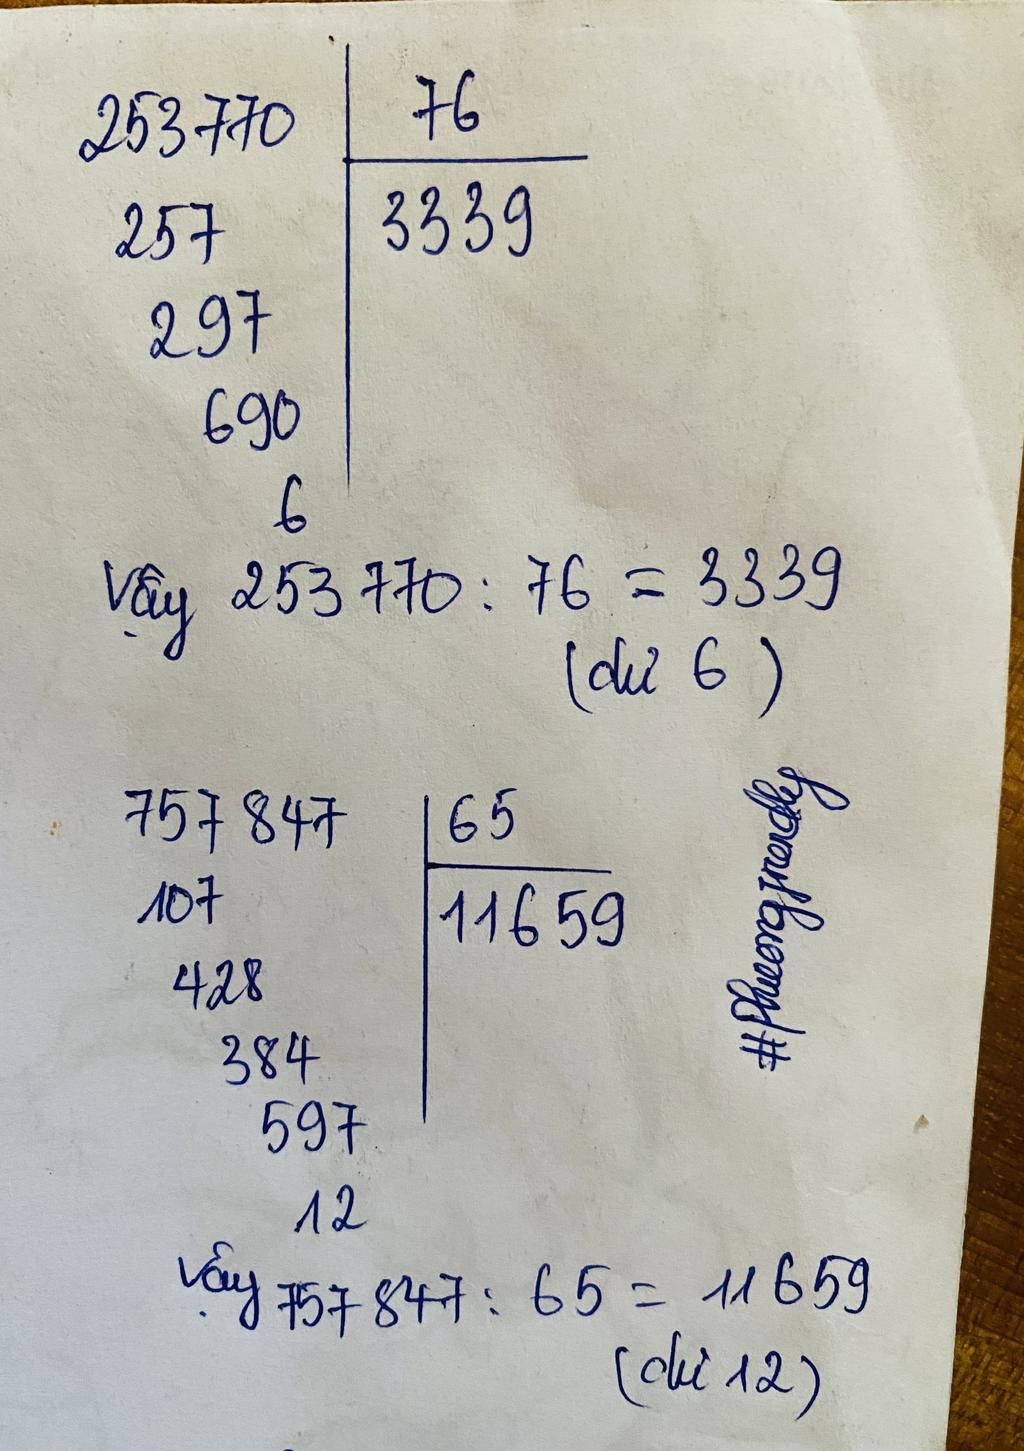 253770 76
257 3339
297
690
6
Vậy 253770 : 76 = 3339
(dư 6)
757847 65
107 11659
428
384
597
12
Vậy 757847 : 65 = 11659
(dư 12)